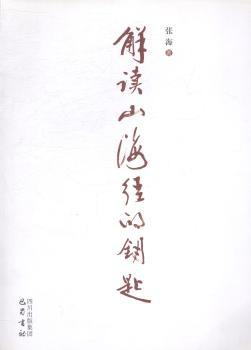 张海 著
解读山海径的钥匙
四川出版集团
巴蜀書社